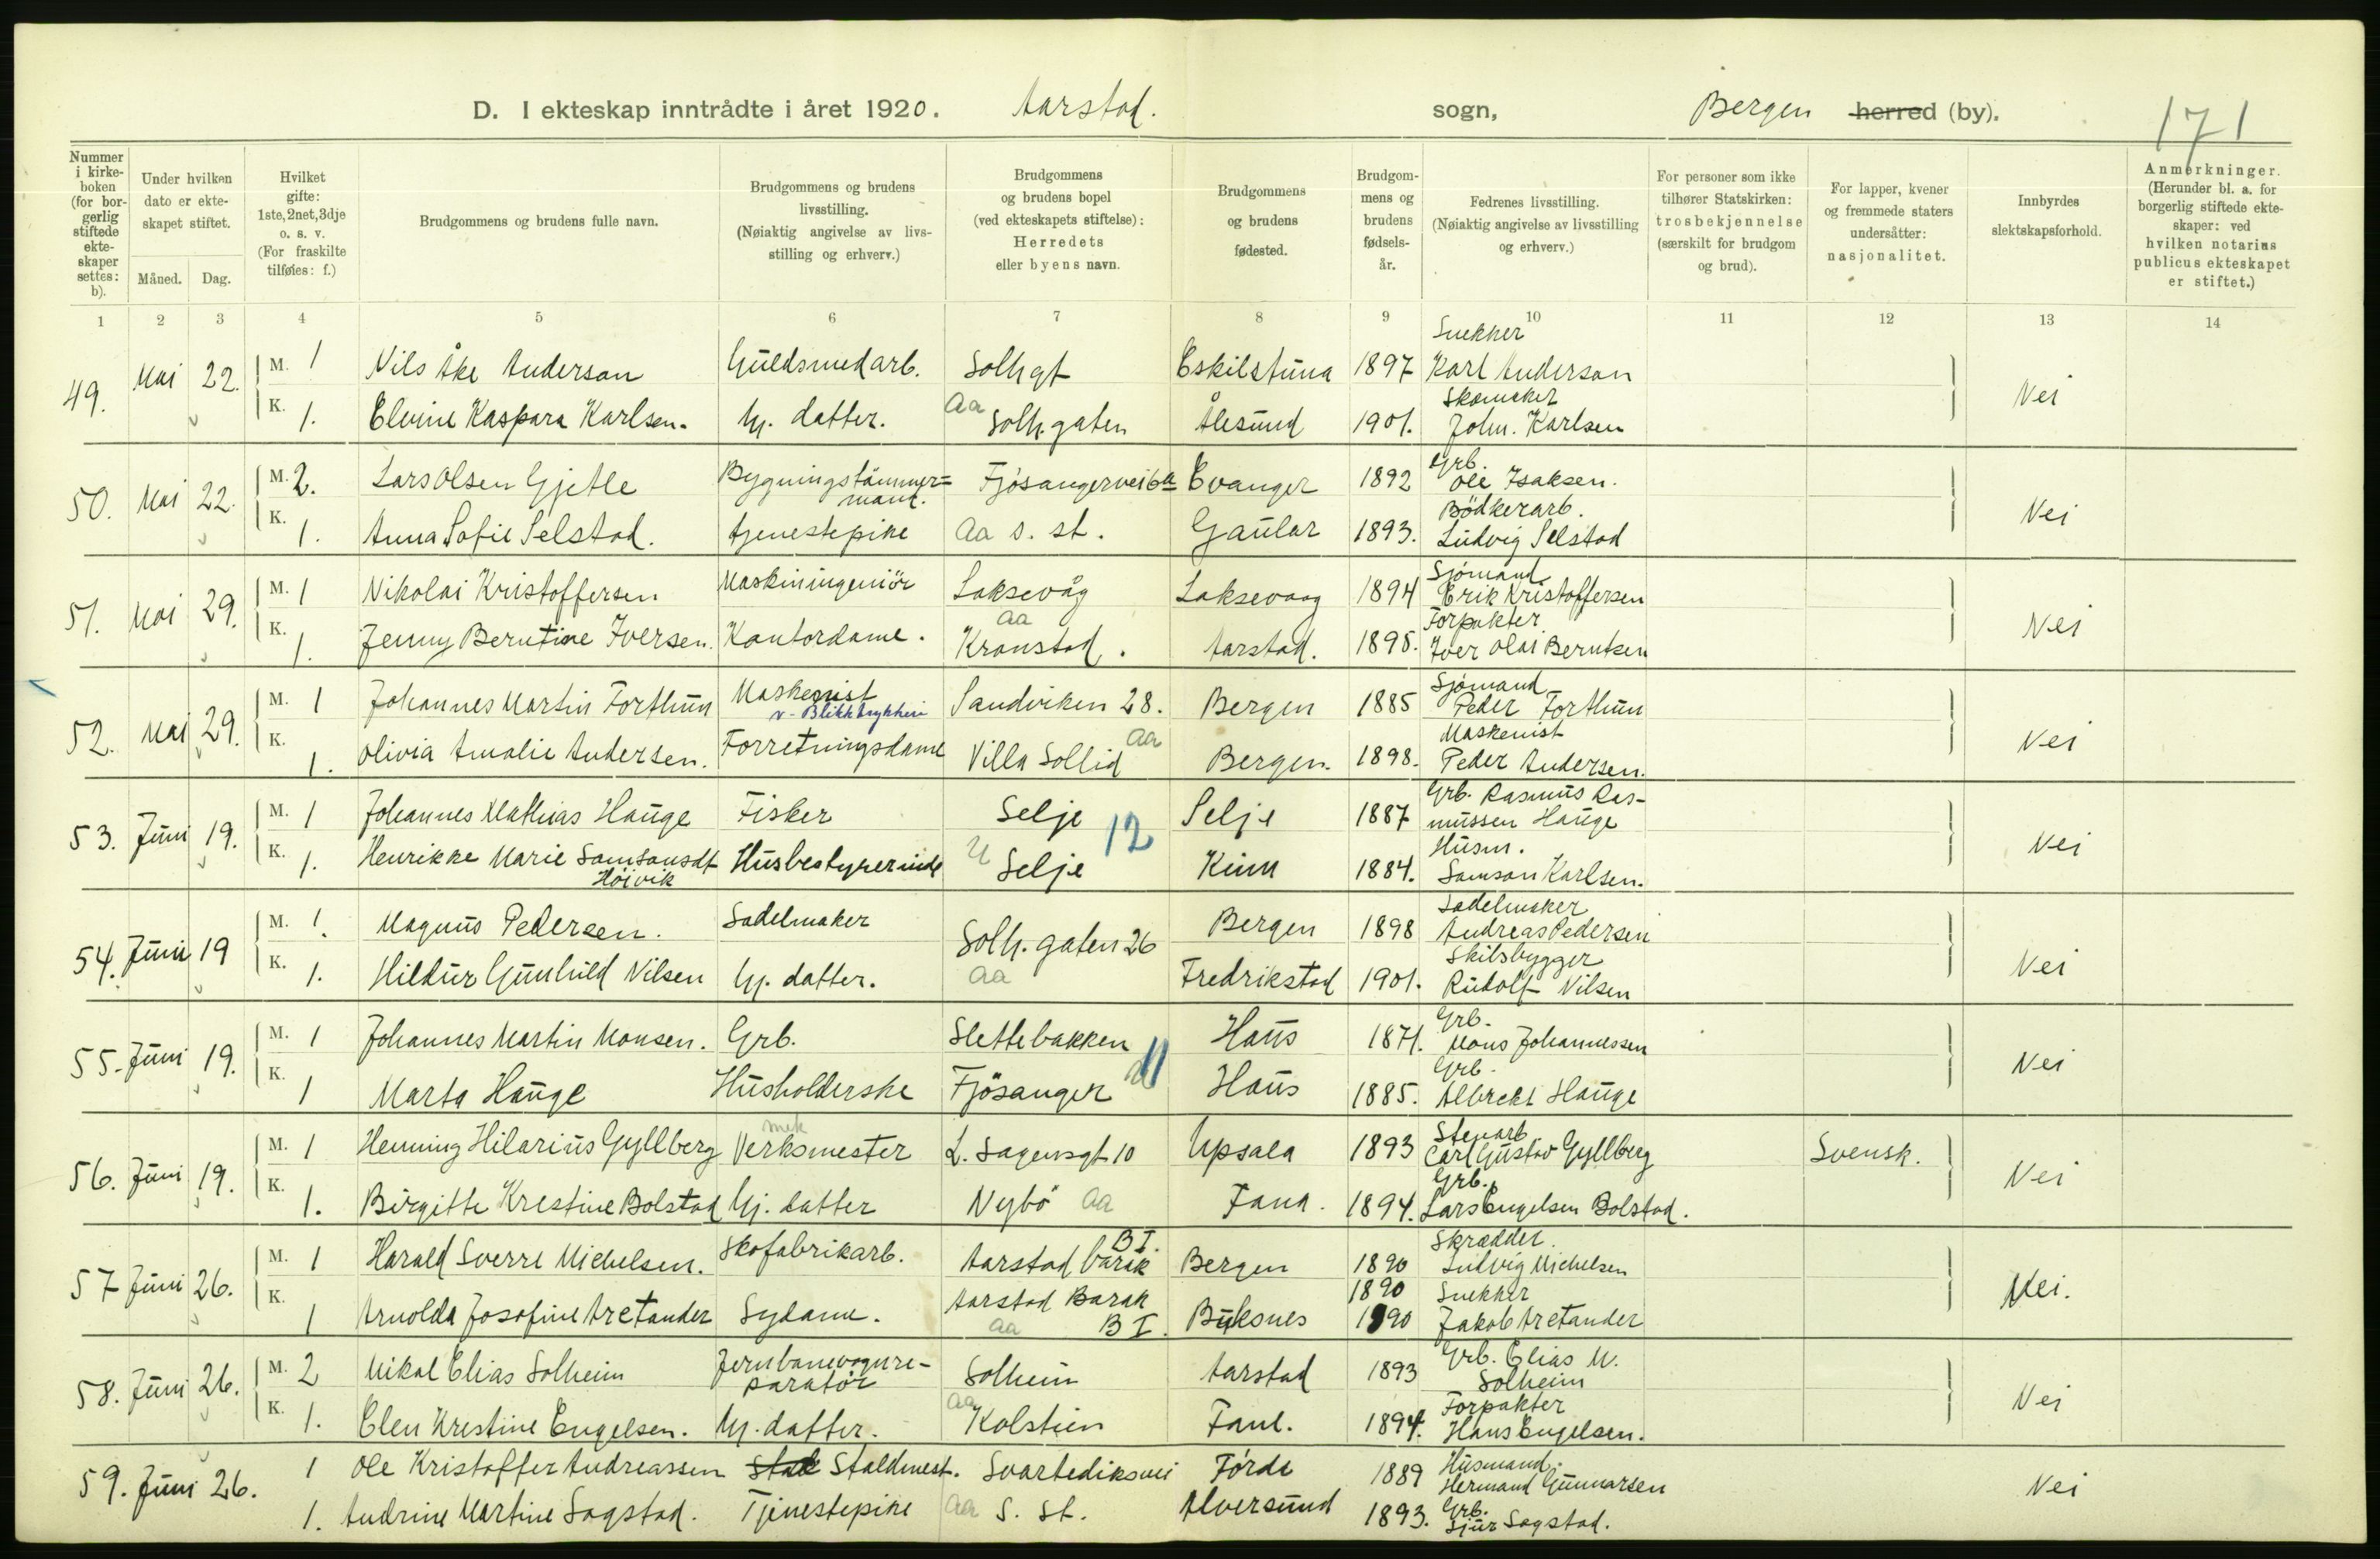 D. I ekteskap inntrådte i året 1920. Aarstad. sogn, Bergen herred (by). 171
Nummer i kirkeboken (for borgerlig stiftede ekteskaper settes: b).
Under hvilken dato er ekteskapet stiftet.
Måned. Dag.
Hvilket gifte: 1ste, 2net, 3dje o. s. v. (For fraskilte tilføies: f.)
Brudgommens og brudens fulle navn.
Brudgommens og brudens livsstilling. (Nøiaktig angivelse av livsstilling og erhverv.)
Brudgommens og brudens bopel (ved ekteskapets stiftelse): Herredets eller byens navn.
Brudgommens og brudens fødested.
Brudgommens og brudens fødselsår.
Fedrenes livsstilling. (Nøiaktig angivelse av livsstilling og erhverv.)
For personer som ikke tilhører Statskirken: trosbekjennelse (særskilt for brudgom og brud).
For lapper, kvener og fremmede staters undersåtter: nasjonalitet.
Innbyrdes slektskapsforhold.
Anmerkninger. (Herunder bl. a. for borgerlig stiftede ekteskaper: ved hvilken notarius publicus ekteskapet er stiftet.)
1 2 3 4 5 6 7 8 9 10 11 12 13 14
49. Mai 22. M. 1 Nils Åke Anderson Guldsmedarb. Solh gt Eskilstuna 1897 Snekker Karl Anderson Nei
K. 1. Elvine Kaspara Karlsen. Hj. datter. Aa Solh. gaten Ålesund 1901. Skomaker Joh. Karlsen
50. Mai 22. M. 2. Lars Olsen Gjetle Bygningstømmermand. Fjøsangervei 6a Evanger 1892 Grb. Ole Isaksen. Nei
K. 1. Anna Sofie Selstad. tjenestepike Aa s. st. Gaular 1893. Bødkerarb. Ludvig Selstad
51. Mai 29. M. 1 Nikolai Kristoffersen Maskiningeniör Laksevåg Laksevaag 1894 Sjömand Erik Kristoffersen Nei
K. 1. Jenny Berntine Iversen. Kontordame. Aa Kronstad. Aarstad. 1895. Forpakter Iver Olai Berntsen
52. Mai 29. M. 1 Johannes Martin Forthun Maskenist v. Blikktrykkeri Sandviken 28. Bergen 1885 Sjömand Peder Forthun Nei
K. 1. Olivia Amalie Andersen. Forretningsdame Villa Sollid Aa Bergen. 1898. Maskenist Peder Andersen.
53. Juni 19. M. 1 Johannes Mathias Hauge Fisker Selje 12 Selje 1887 Grb. Rasmus Rasmussen Hauge Nei
K. 1. Henrikke Marie Samsonsdt Höivik Husbestyrerinde U Selje Kinn 1884. Husm. Samson Karlsen.
54. Juni 19 M. 1. Magnus Pedersen. Sadelmaker Solh. gaten 26 Bergen 1898 Sadelmaker Andreas Pedersen Nei
K. 1. Hildur Gunhild Nilsen Hj. datter. Aa Fredrikstad 1901. Skibsbygger Rudolf Nilsen
55. Juni 19. M. 1 Johannes Martin Monsen. Grb. Slettebakken 11 Haus 1871. Grb. Mons Johannessen Nei
K. 1 Marta Hauge Husholderske Fjösanger Haus 1885. Grb. Albrekt Hauge
56. Juni 19. M. 1 Henning Hilarius Gyllberg mek Verksmester L. Sagensgt 10 Upsala 1893 Stenarb Carl Gustav Gyllberg Svensk. Nei
K. 1. Birgitte Krestine Bolstad Hj. datter Nybö Aa Fana. 1894. Grb. Lars Engelsen Bolstad.
57 Juni 26. M. 1 Harald Sverre Michelsen. Skofabrikarb. Aarstad barak B I. Bergen 1890 Skrædder. Ludvig Michelsen Nei.
K. 1 Arnolda Josofine Aretander Sydame. Aarstad Barak B I. Aa Buksnes 1890 1890 Snekker Jakob Aretander
58. Juni 26. M. 2 Mikal Elias Solheim Jernbanevognreparatör Solheim Aarstad 1893 Grb. Elias M. Solheim Nei
K. 1. Elen Krestine Engelsen. Hj. datter. Aa Kolstien Fane. 1894. Forpakter Hans Engelsen.
59. Juni 26. 1 Ole Kristoffer Andreassen Staldmest. Svartediksvei Förde 1889 Husmand. Hermand Gunnarsen Nei
1. Andrine Martine Sagstad. Tjenestepike Aa S. St. Alversund 1893. Grb. Sjur Sagstad.